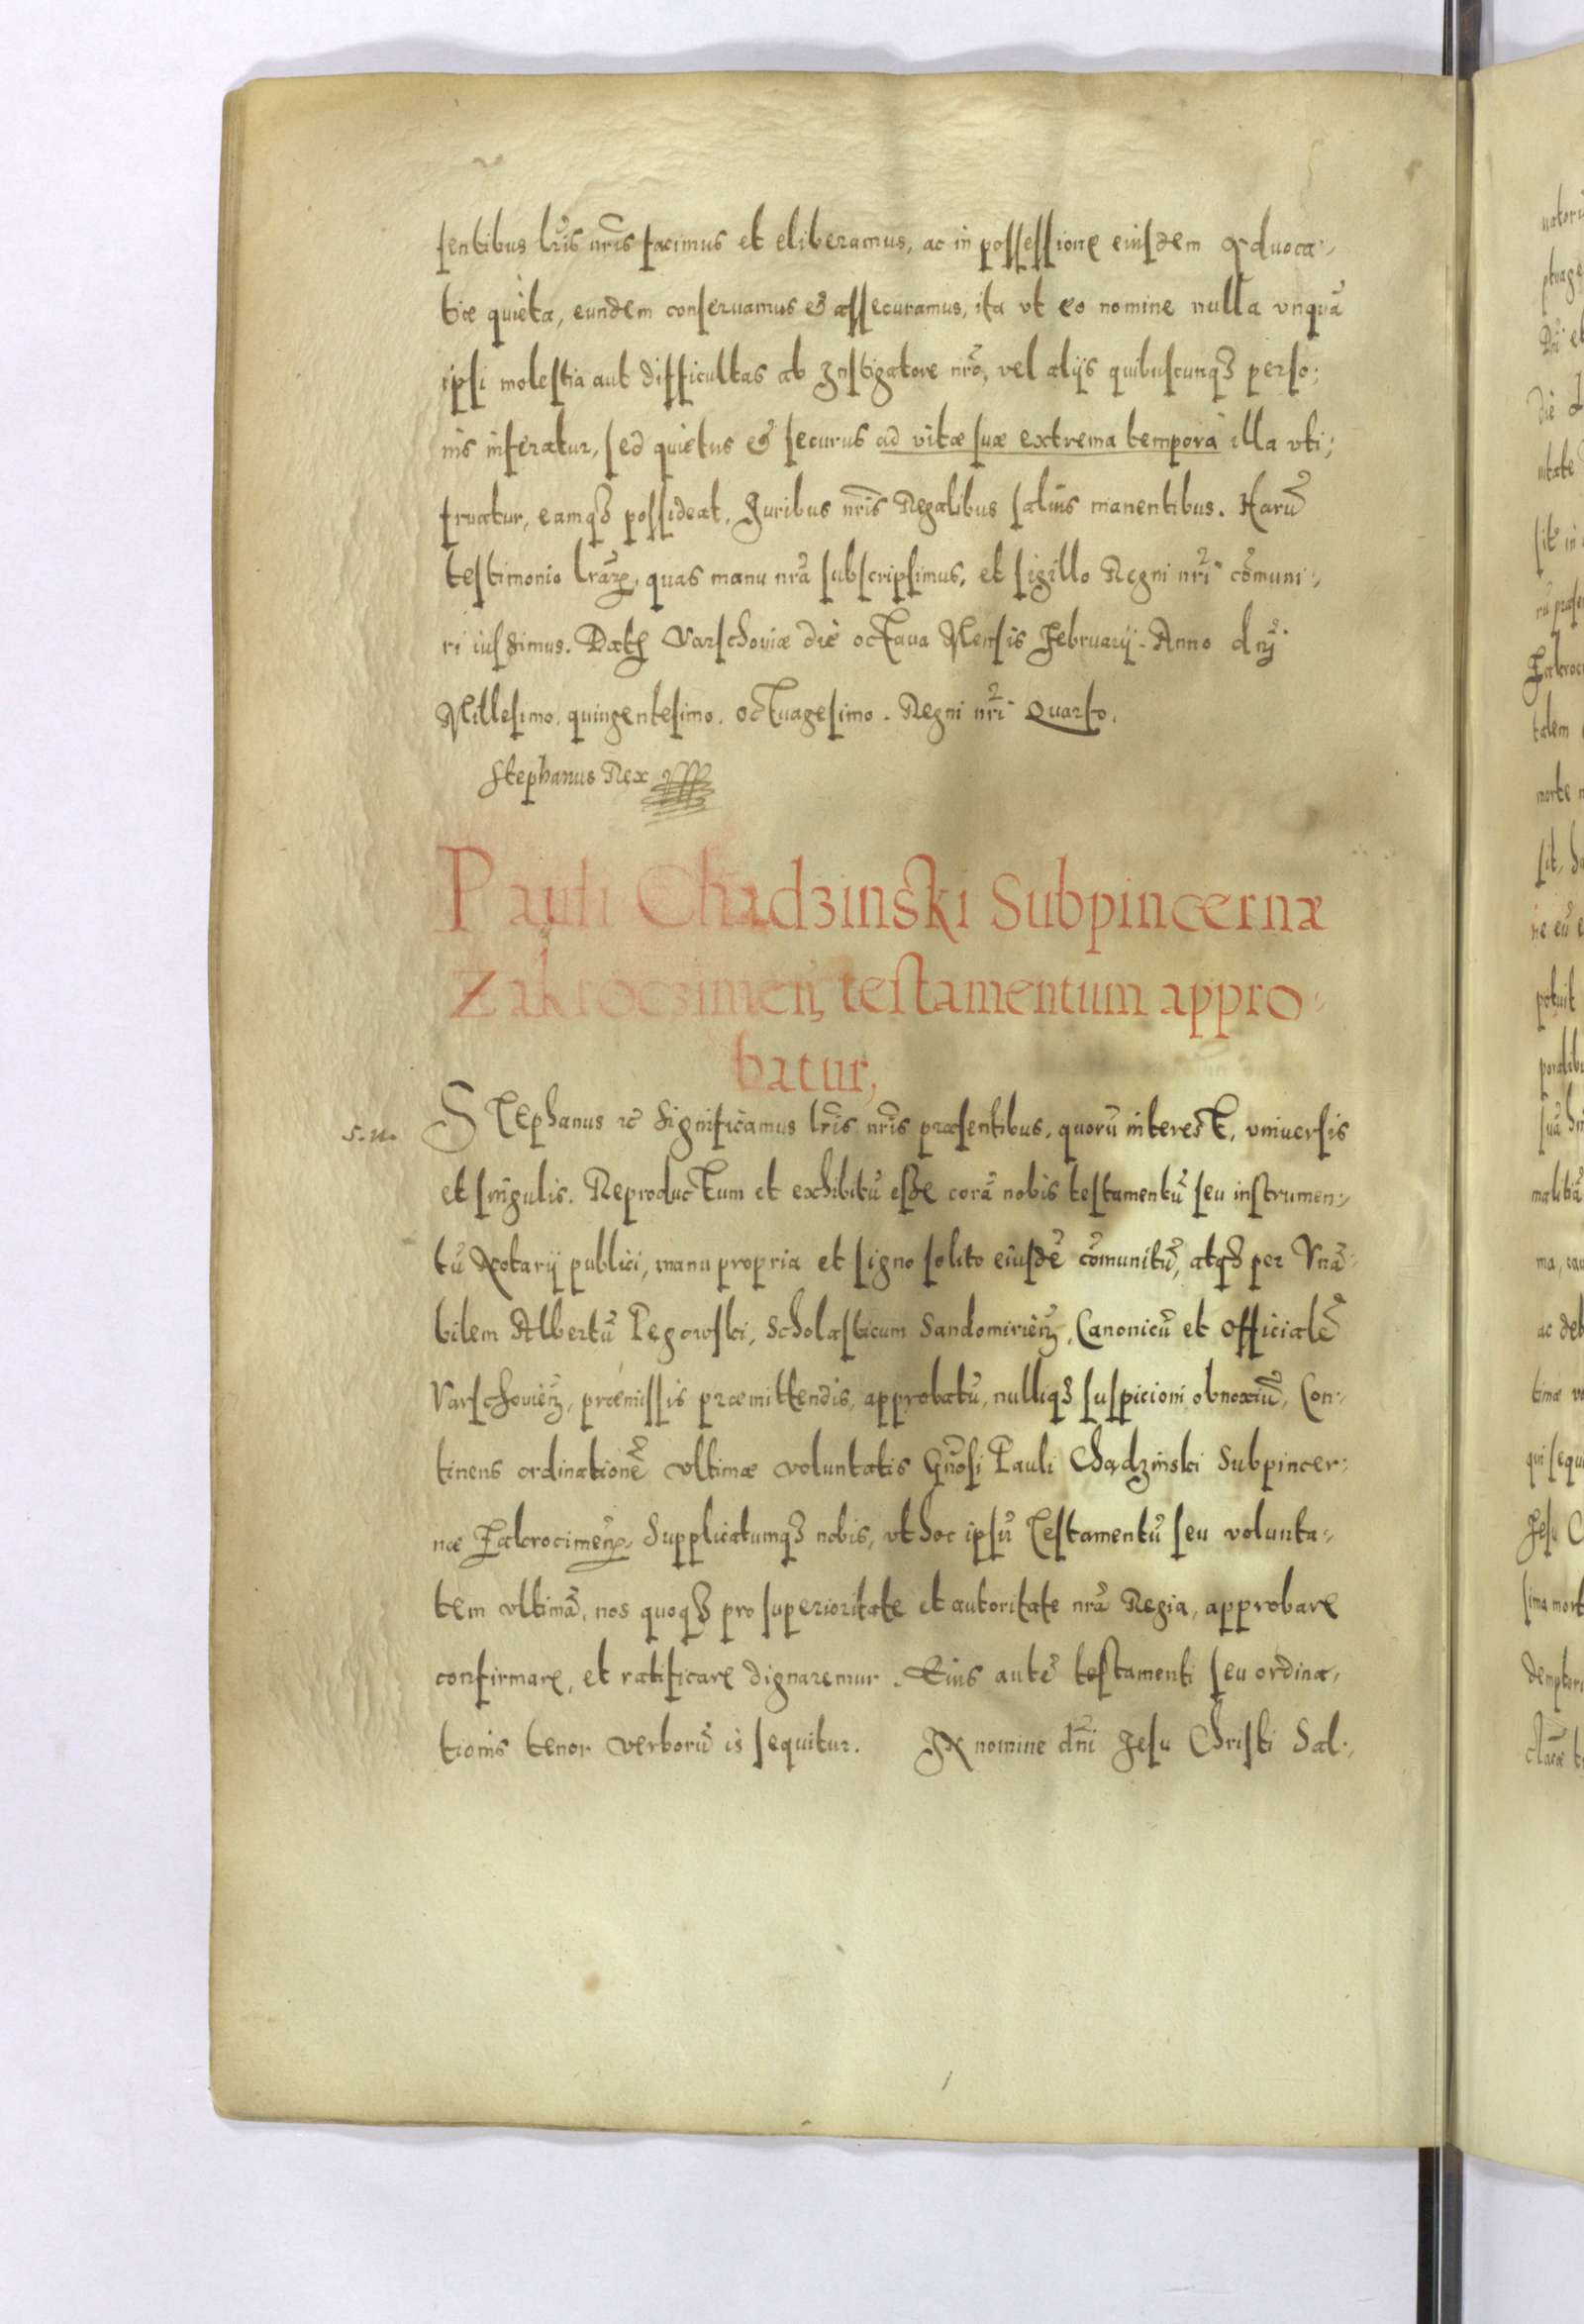 sentibus lr̃is nr̃is facimus et eliberamus, ac in possessione eiusdem Aduoca:,
tiæ quieta, eundem conseruamus & assecuramus, ita vt eo nomine nulla vnquã
ipsi molestia aut difficultas ab Instigatore nrõ, vel alijs quibuscunqȝ perso:
nis inferatur, sed quietus & securus ad vitæ suæ extrema tempora illa vti:
fruatur, eamqȝ possideat, Juribus nr̃is Regalibus saluis manentibus. Harũ
testimonio lrãrꝝ, quas manu nrã subscripsimus, et sigillo Regni nrĩ cõmuni:,
ri iussimus. Datꝭ Varschouiæ die octaua Mensis Februarij. Anno dnj̃
Millesimo. quingentesimo. octuagesimo. Regni nrĩ Quarto.
Stephanus Rex
Pauli Chadzinski Subpincernæ
Zakroczimeñ testamentum appro:
batur,
s.n.
Stephanus ꝛc̃ Significamus lr̃is nr̃is præsentibus, quorũ interest, vniuersis
et singulis. Reproductum et exhibitũ esse corã nobis testamentũ seu instrumen:,
tũ Notarij publici, manu propria et signo solito eiusdẽ cõmunitũ, atqȝ per Vnã:
bilem Albertũ Pegowski, Scholasticum Sandomirieñ, Canonicũ et Officialẽ
Varschouieñ, præmissis præmittendis, approbatũ, nulliqȝ suspicioni obnoxiũ, Con:
tinens ordinationẽ vltimæ voluntatis Gñosi Pauli Chądzinski Subpincer:
næ Zakrocimeñ. Supplicatumqȝ nobis, vt hoc ipsũ Testamentũ seu volunta:,
tem vltimã, nos quoqȝ pro superioritate et autoritate nrã Regia, approbare
confirmare, et ratificare dignaremur. Eius autẽ testamenti seu ordina,
tionis tenor verborũ is sequitur. IN nomine dñi Jesu Christi Sal:,